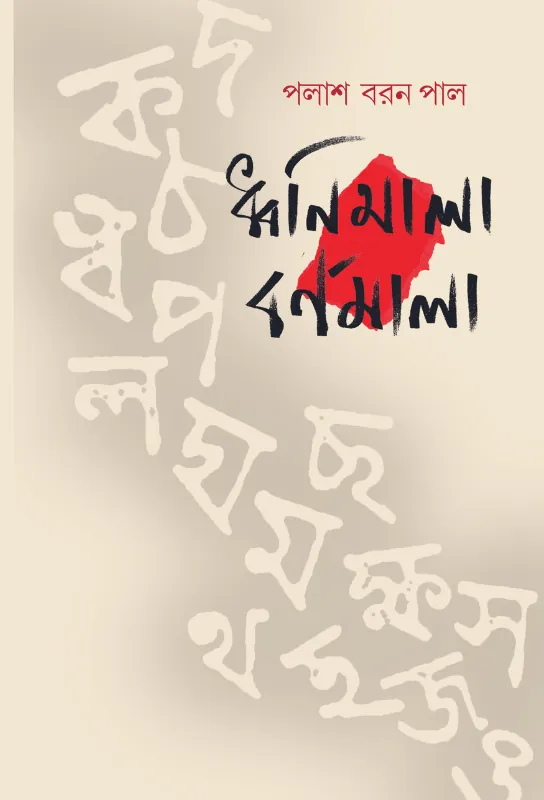 পলাশ বরন পাল
ধ্বনিমালা
বর্ণমালা
দ
ক
ঠ
ধ্ব
প
ল
ঘ
ছ
ম
ক্ষ
স
থ
হ
জ